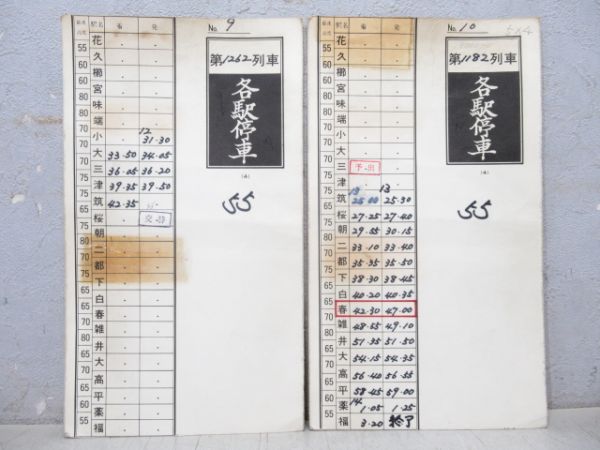 No. 9
第1262列車
各駅停車
(4)
55
駅名 着 発
花 . .
久 . .
櫛 . .
宮 . .
味 . .
端 . .
小 . 12 31-30
大 33-50 34-05
三 36-05 36-20
津 39-35 39-50
筑 42-35
桜 . 交・替
朝 . .
二 . .
都 . .
下 . .
白 . .
春 . .
雑 . .
井 . .
大 . .
高 . .
平 . .
薬 . .
福 . .
55
65
60
65
70
75
70
65
75
80
70
75
65
70
65
60
55
No. 10
第1182列車
各駅停車
(4)
55
駅名 着 発
花 . .
久 . .
櫛 . .
宮 . .
味 . .
端 . .
小 . .
大 . .
三 予・出 .
津 . .
筑 13 25-00 13 25-30
桜 27-25 27-40
朝 29-55 30-15
二 33-10 33-40
都 35-35 35-50
下 38-30 38-45
白 40-20 40-35
春 42-30 47-00
雑 48-55 49-10
井 51-35 51-50
大 54-15 54-35
高 56-40 56-55
平 58-45 59-00
薬 14 1-05 1-25
福 3-20 終了